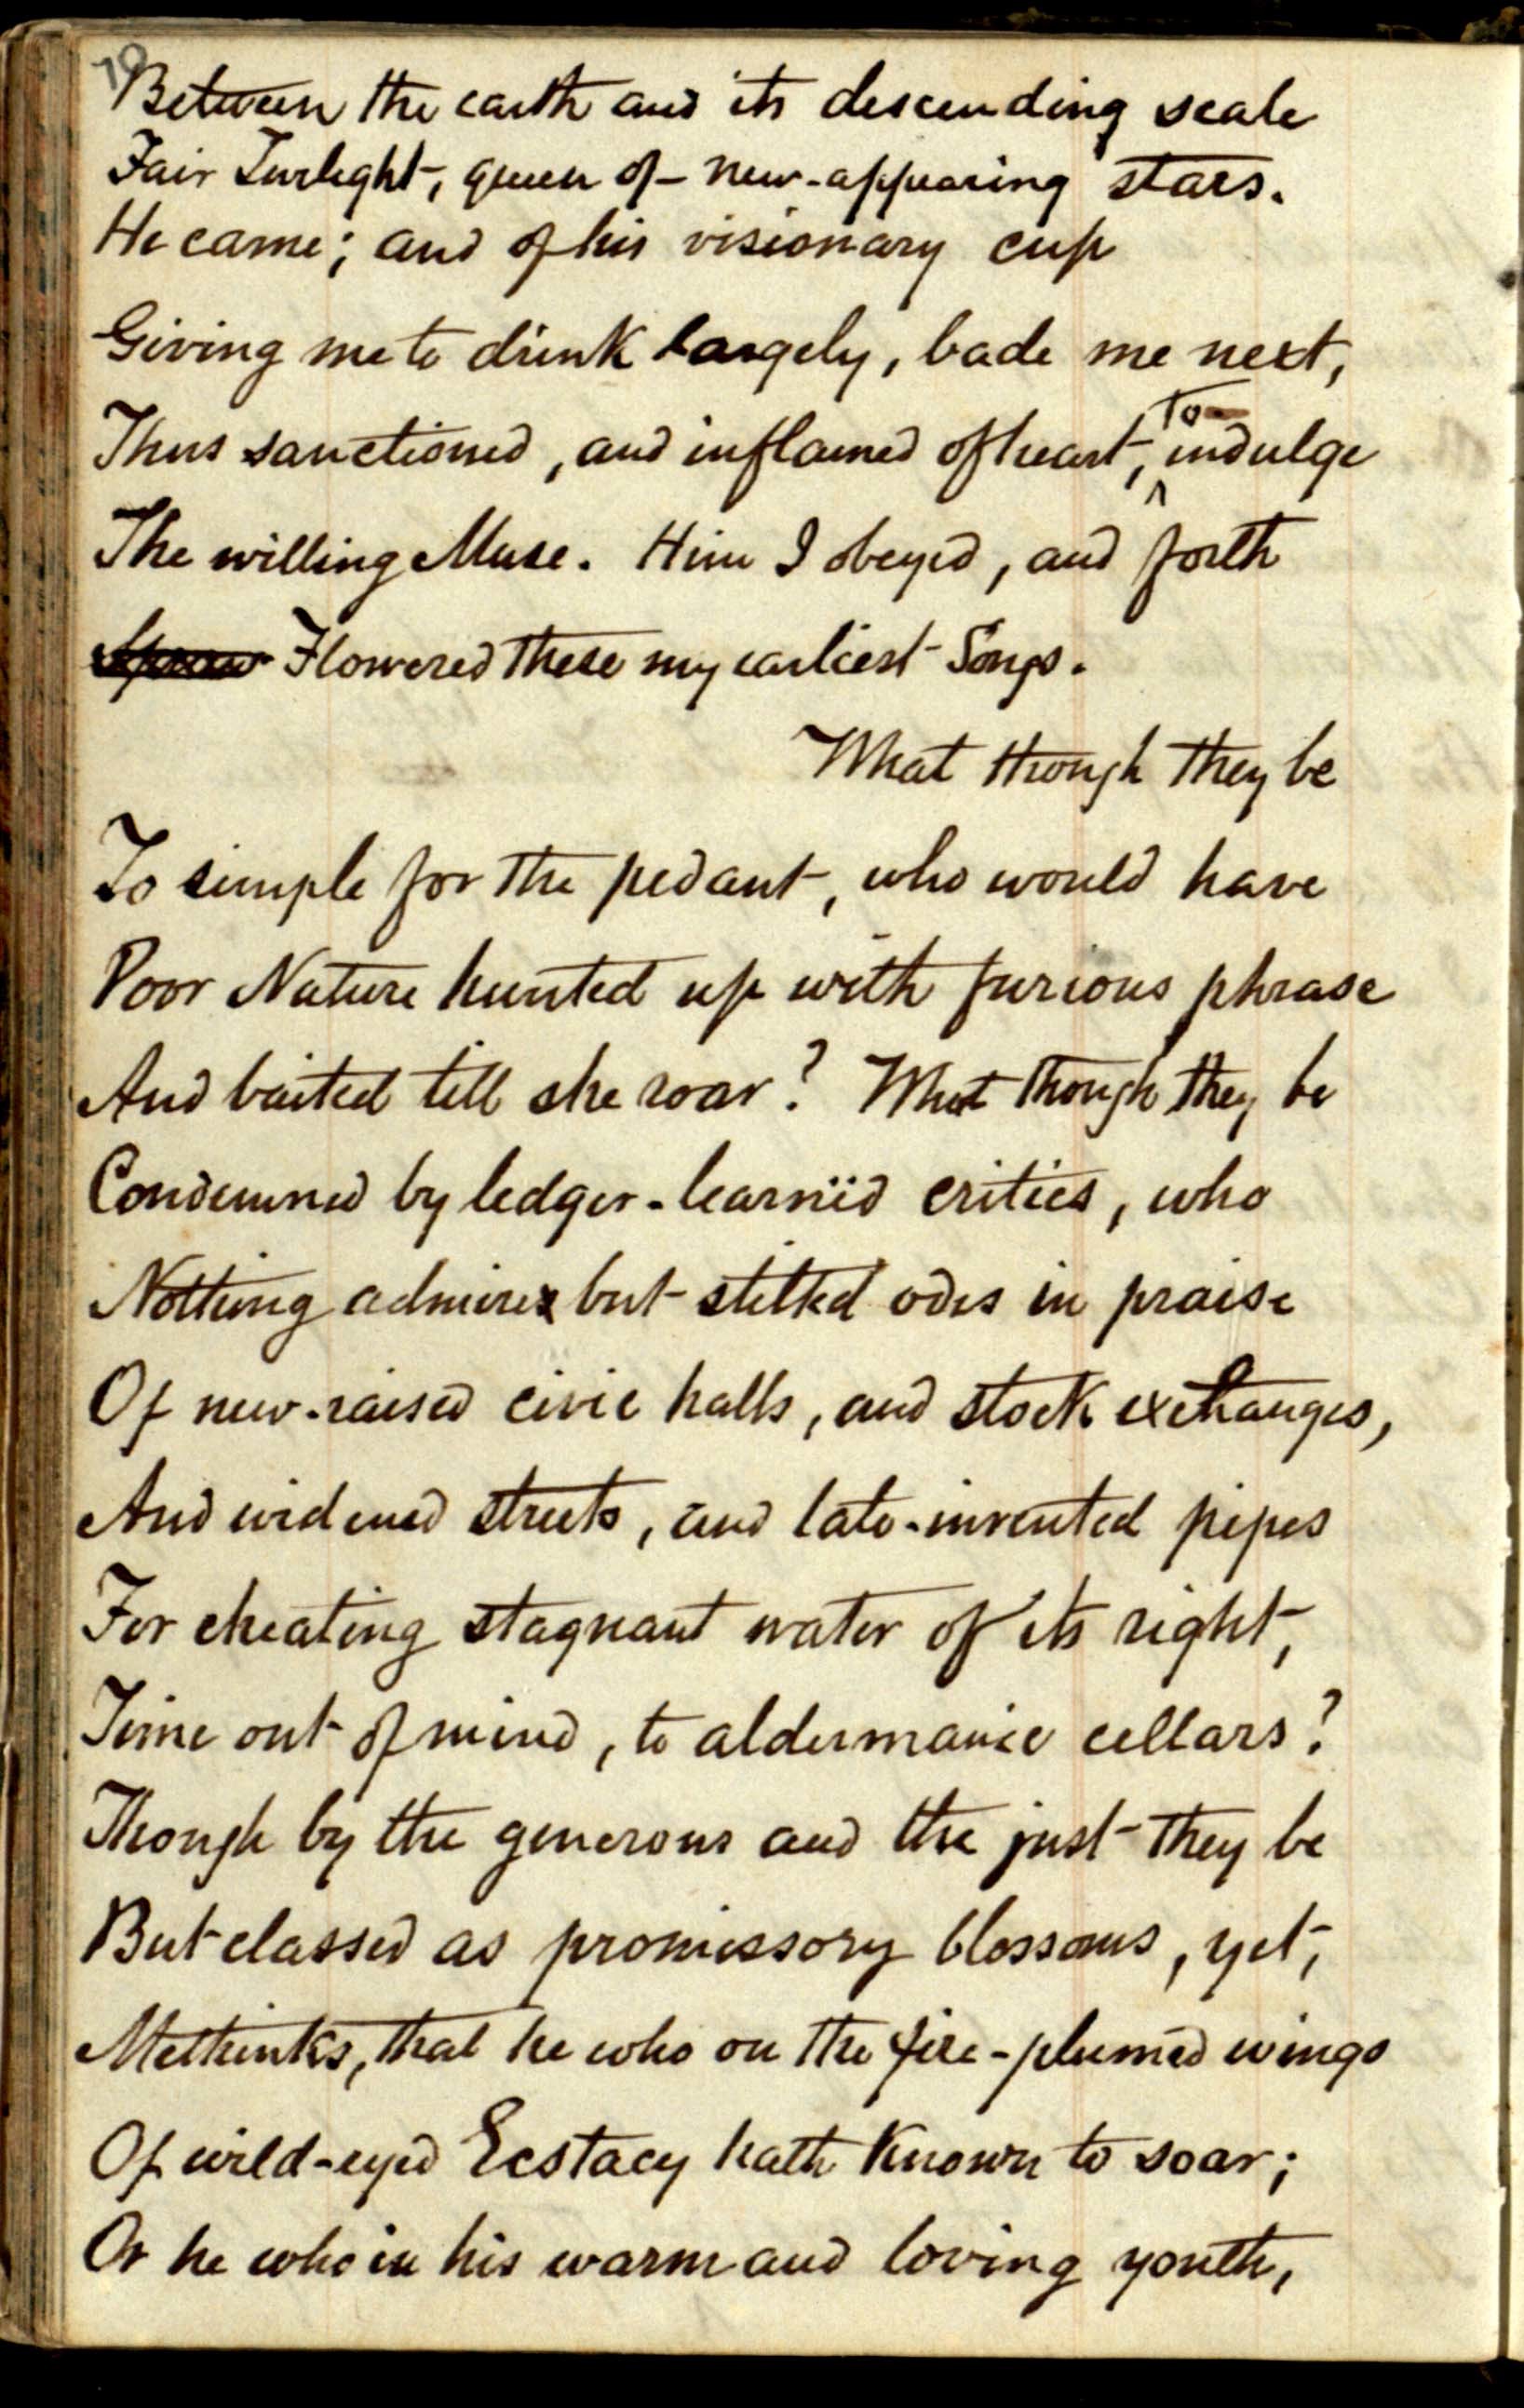 70
Between the earth and its descending scale
Fair Twilight, queen of new-appearing stars.
He came; and of his visionary cup
Giving me to drink largely, bade me next,
Thus sanctioned, and inflamed of heart, to indulge
The willing Muse. Him I obeyed, and forth
Flowered these my earliest Songs.
What though they be
To simple for the pedant, who would have
Poor Nature hunted up with furious phrase
And baited till she roar? What though they be
Condemned by ledger-learnëd critics, who
Nothing admire but stilted odes in praise
Of new-raised civic halls, and stock exchanges,
And widened streets, and late-invented pipes
For cheating stagnant water of its right,
Time out of mind, to aldermanic cellars?
Though by the generous and the just they be
But classed as promissory blossoms, yet,
Methinks, that he who on the fire-plumed wings
Of wild-eyed Ecstacy hath known to soar;
Or he who in his warm and loving youth,